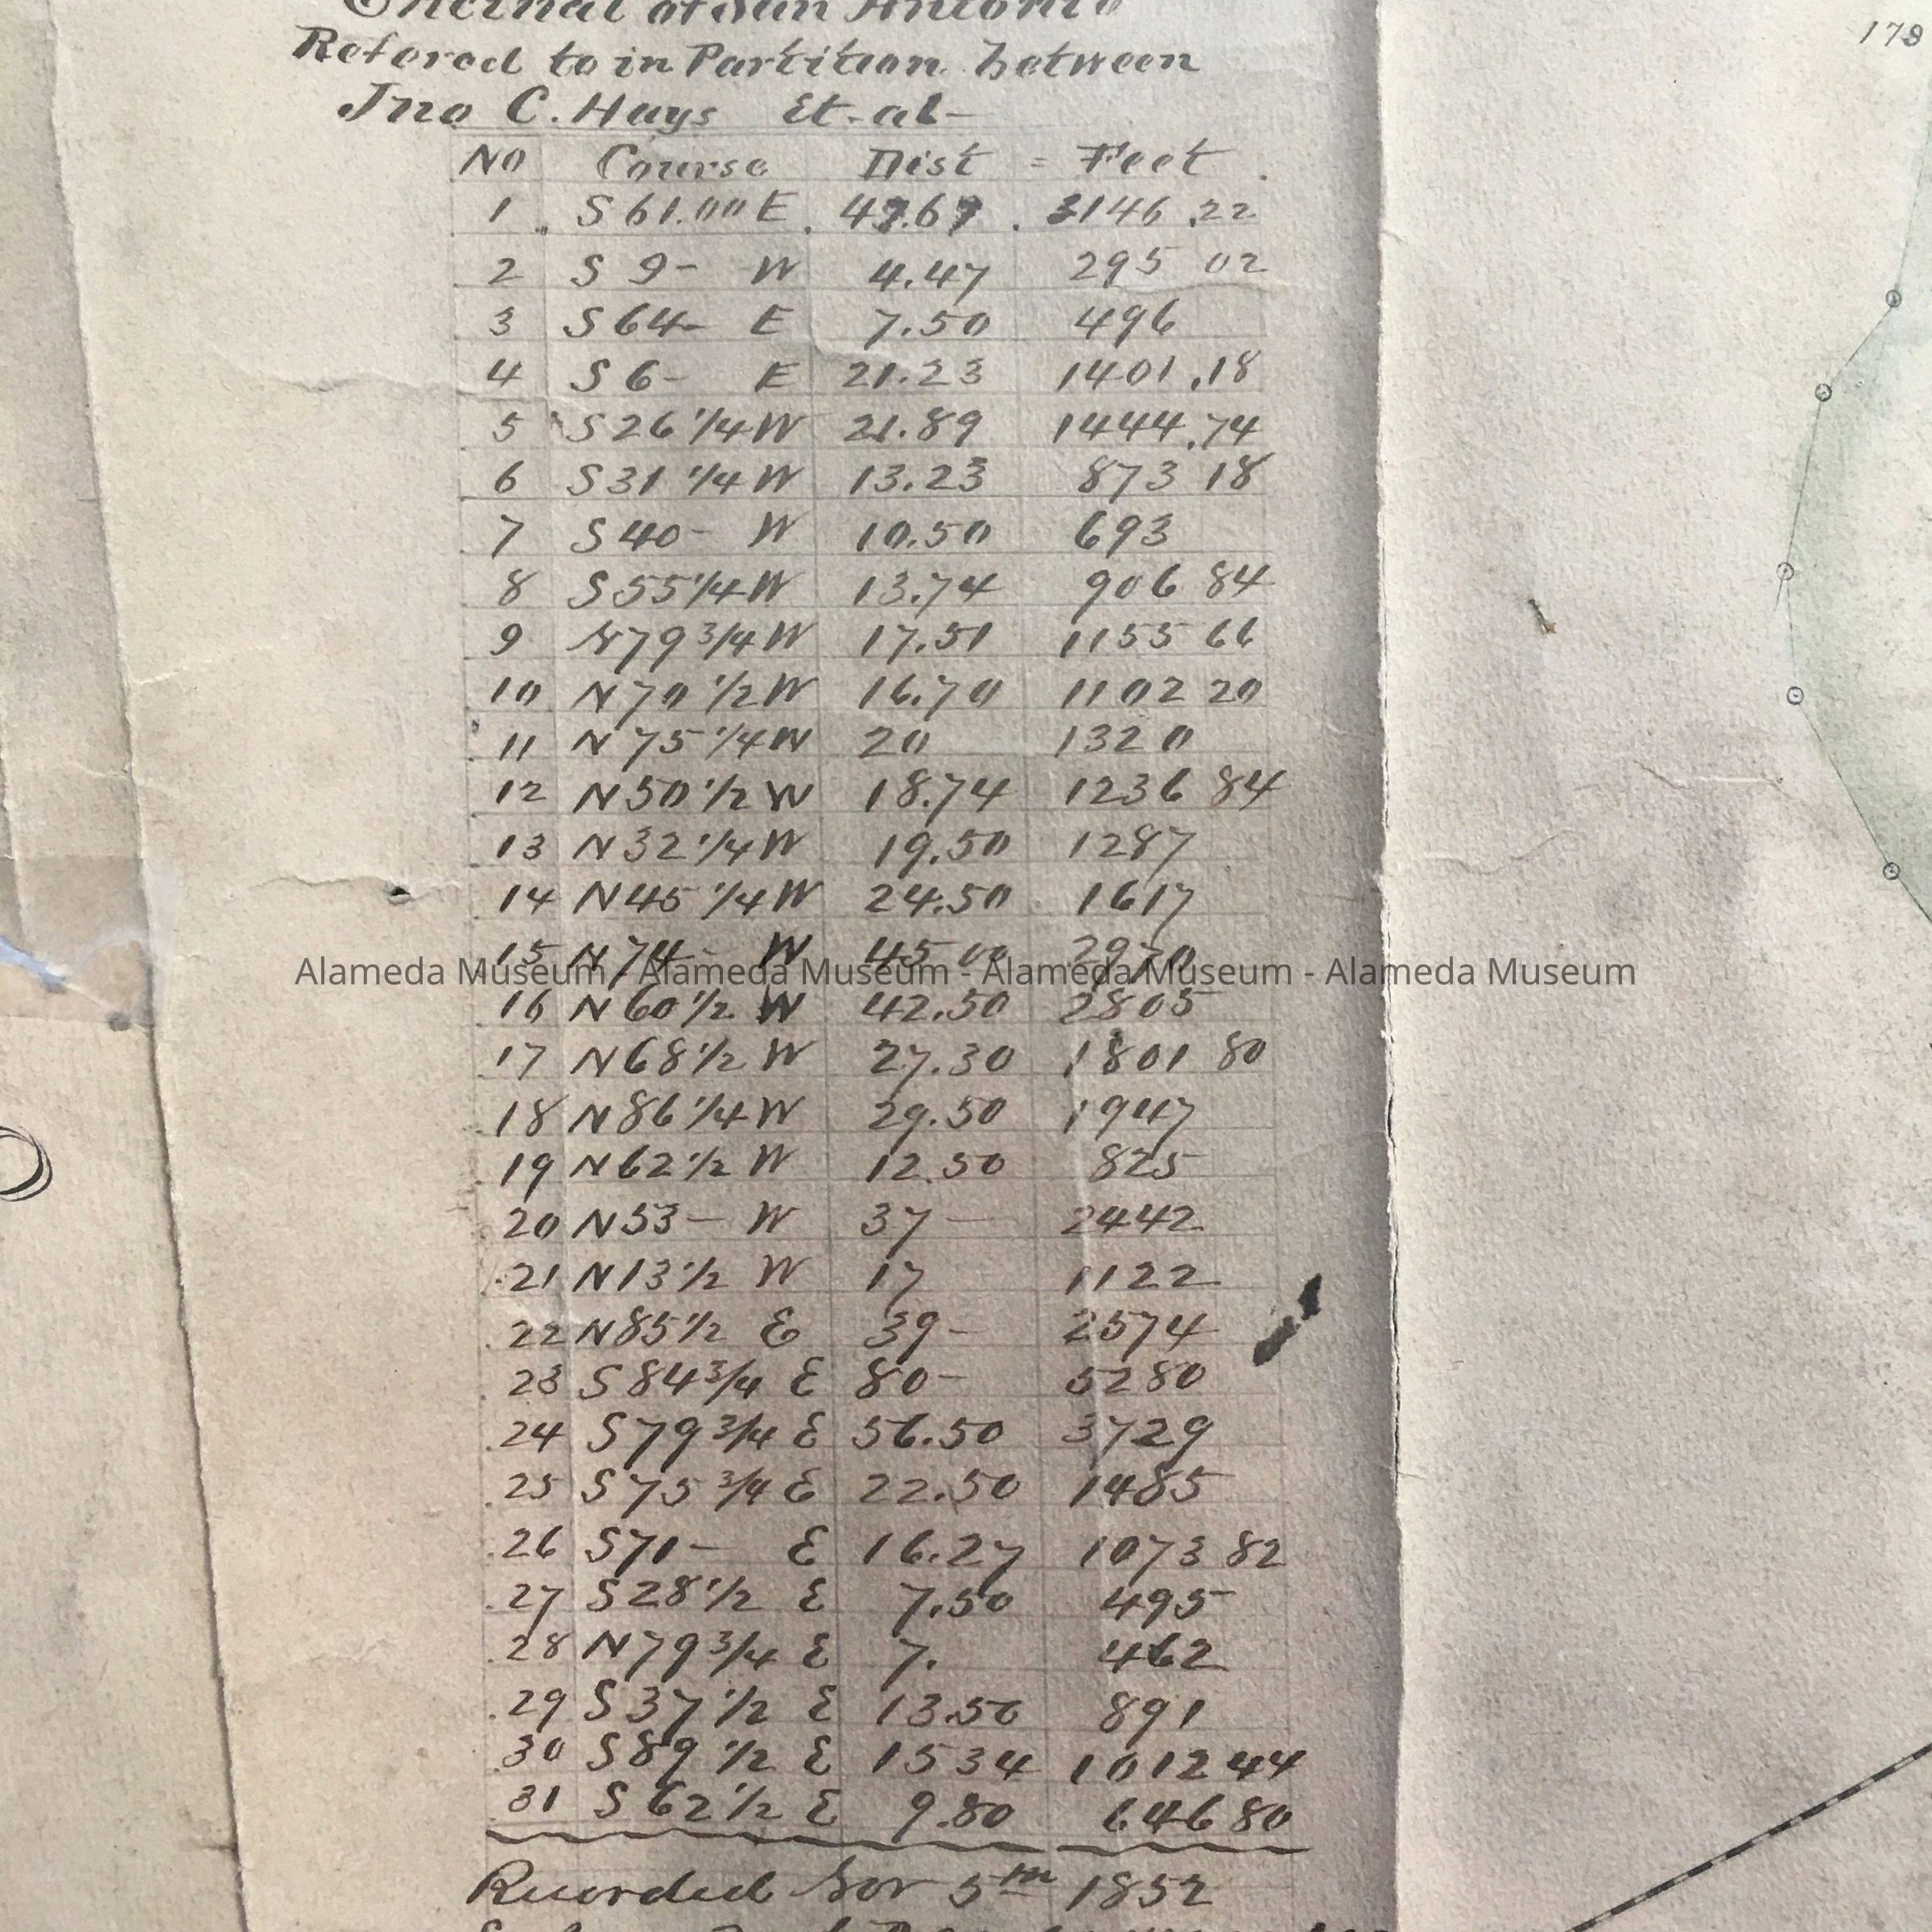 Encinal of San Antonio
Refered to in Partition between
Jno C. Hays Et-al-
No Course Dist = Feet
1 S 61.00 E 47.67 3146.22
2 S 9- W 4.47 295 02
3 S 64- E 7.50 496
4 S 6- E 21.23 1401.18
5 S 26 1/4 W 21.89 1444.74
6 S 31 1/4 W 13.23 873 18
7 S 40- W 10.50 693
8 S 55 1/4 W 13.74 906 84
9 N 79 3/4 W 17.51 1155 66
10 N 70 1/2 W 16.70 1102 20
11 N 75 1/4 W 20 1320
12 N 50 1/2 W 18.74 1236 84
13 N 32 1/4 W 19.50 1287
14 N 45 1/4 W 24.50 1617
15 N 74- W 45.00 2970
Alameda Museum - Alameda Museum - Alameda Museum - Alameda Museum
16 N 60 1/2 W 42.50 2805
17 N 68 1/2 W 27.30 1801 80
18 N 86 1/4 W 29.50 1947
19 N 62 1/2 W 12.50 825
20 N 53- W 37- 2442
21 N 13 1/2 W 17 1122
22 N 85 1/2 E 39- 2574
23 S 84 3/4 E 80- 5280
24 S 79 3/4 E 56.50 3729
25 S 75 3/4 E 22.50 1485
26 S 71- E 16.27 1073 82
27 S 28 1/2 E 7.50 495
28 N 79 3/4 E 7. 462
29 S 37 1/2 E 13.50 891
30 S 89 1/2 E 15 34 1012 44
31 S 62 1/2 E 9.80 646 80
Recorded Nov 5th 1852
178